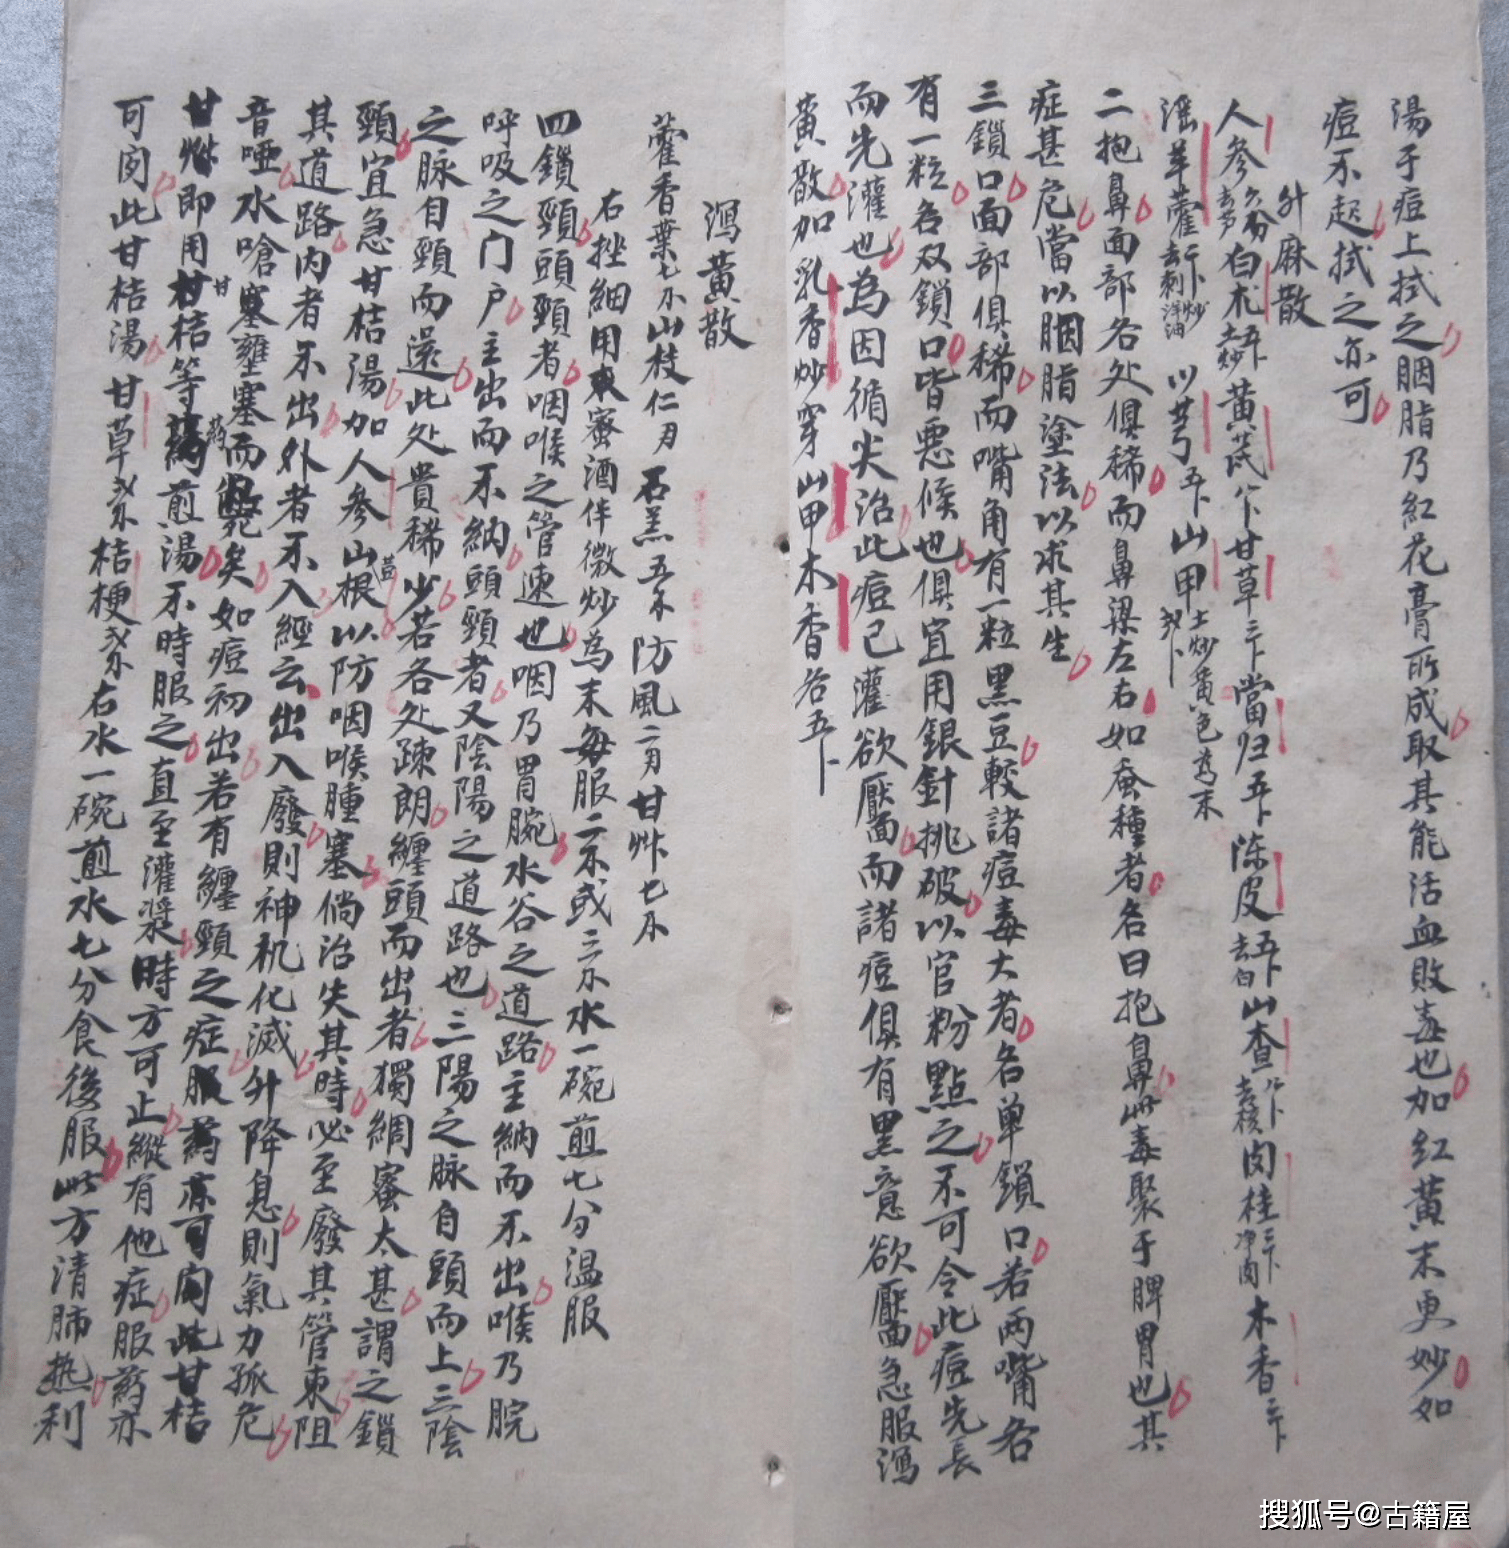 湯于痘上拭之胭脂乃紅花膏所成取其能活血敗毒也加红黄末更妙如
痘不起拭之亦可
升麻散
人參去芦白朮土炒黄芪甘草當归陈皮去白山查去核肉桂净肉木香
淫羊藿去刺洋油炒川芎山甲土炒黄色為末
二抱鼻面部各处俱稀而鼻梁左右如蚕種者名曰抱鼻此毒聚于脾胃也其
症甚危當以胭脂塗法以求其生
三鎖口面部俱稀而嘴角有一粒黑豆較諸痘毒大者名单鎖口若两嘴角各
有一粒名双鎖口皆惡候也俱宜用銀針挑破以官粉點之不可令此痘先長
而先灌也為因循失治此痘已灌欲靨而諸痘俱有黑意欲靨急服瀉
黄散加乳香炒穿山甲木香各五卜
瀉黄散
藿香葉七分山枝仁石羔五分防風甘艸七分
右挫細用蜜酒伴微炒為末每服二分或三分水一碗煎七分温服
四鎖頸頭頸者咽喉之管速也咽乃胃腕水谷之道路主納而不出喉乃脘
呼吸之门户主出而不納頭頸者又陰陽之道路也三陽之脉自頭而上三陰
之脉自頸而還此处貴稀少若各处疎朗纏頭而出者獨綢蜜太甚謂之鎖
頸宜急甘桔湯加人參山根以防咽喉腫塞倘治失其時必至廢其管束阻
其道路内者不出外者不入經云出入廢則神机化滅升降息則氣力孤危
音啞水嗆塞壅塞而斃矣如痘初出若有纏頸之症服药亦可闵此甘桔
甘艸即用甘桔等药煎湯不時服之直至灌漿時方可止縱有他症服药亦
可闵此甘桔湯甘草桔梗右水一碗煎水七分食後服此方清肺热利
搜狐号@古籍屋